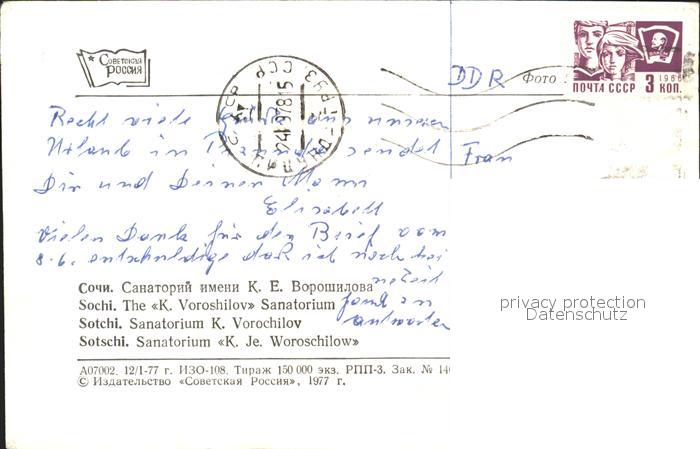 Советская
Россия
DDR
Фото
1966
ПОЧТА СССР 3 КОП.
Recht viele Grüße aus unserem
Urlaub in sendet
Frau
Dir und Deinem Mann
Elisabeth
Vielen Dank für den Brief vom
8.6. entschuldige daß ich noch kei
ne Zeit
fand zu
antworten
Сочи. Санаторий имени К. Е. Ворошилова
Sochi. The «K. Voroshilov» Sanatorium
Sotchi. Sanatorium K. Vorochilov
Sotschi. Sanatorium «K. Je. Woroschilow»
А07002. 12/I-77 г. ИЗО-108. Тираж 150 000 экз. РПП-3. Зак. №
© Издательство «Советская Россия», 1977 г.
privacy protection
Datenschutz